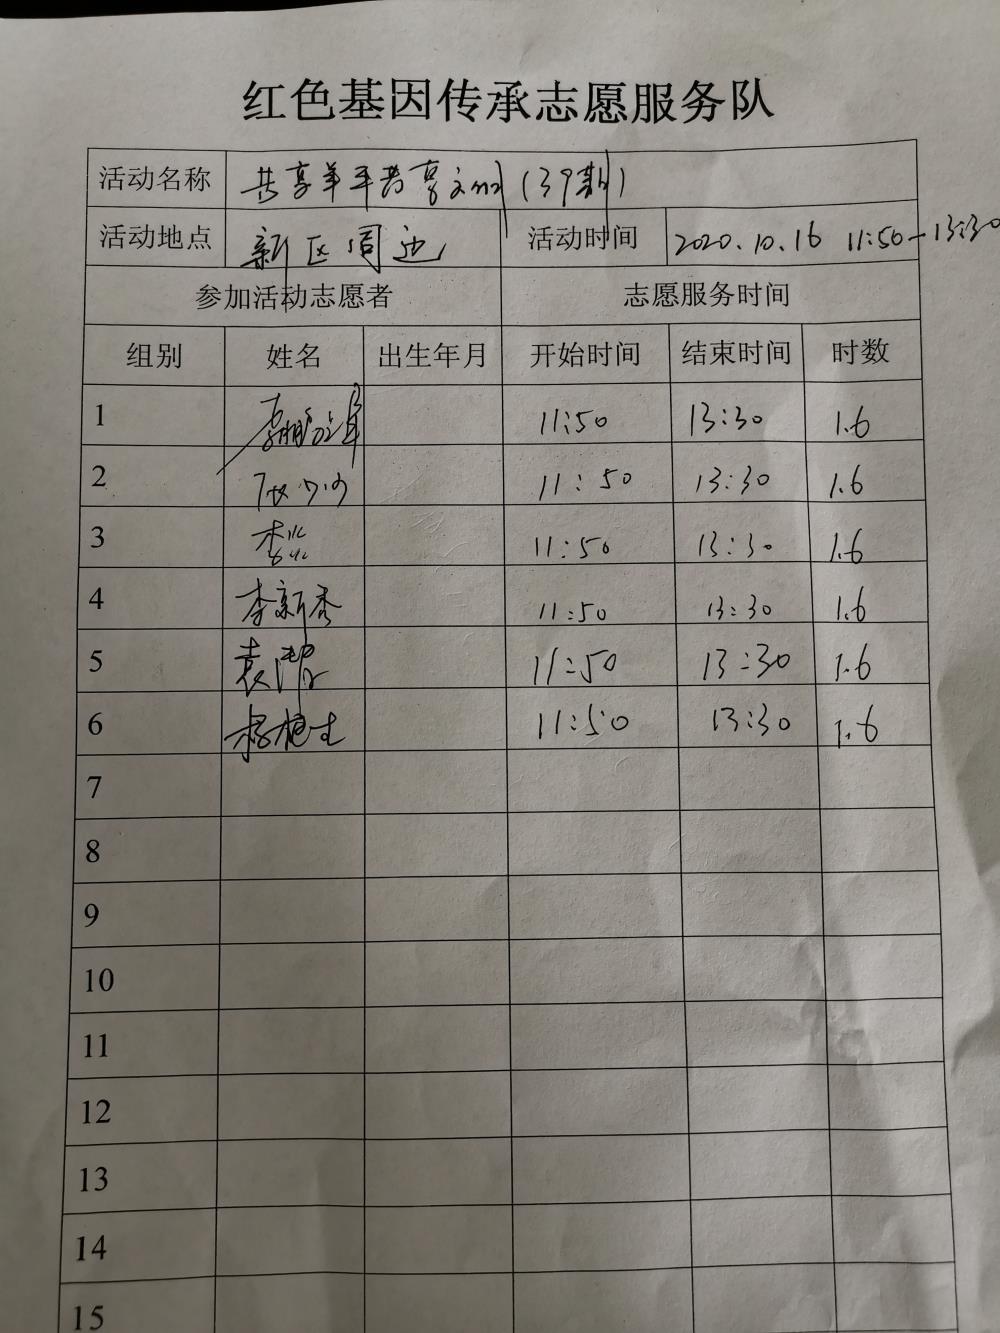 红色基因传承志愿服务队
活动名称 共享单车共享文明(39期)
活动地点 新区周边 活动时间 2020.10.16 11:50-13:30
参加活动志愿者 志愿服务时间
组别 姓名 出生年月 开始时间 结束时间 时数
1 11:50 13:30 1.6
2 11:50 13:30 1.6
3 11:50 13:30 1.6
4 李新秀 11:50 13:30 1.6
5 袁 11:50 13:30 1.6
6 杨 11:50 13:30 1.6
7
8
9
10
11
12
13
14
15